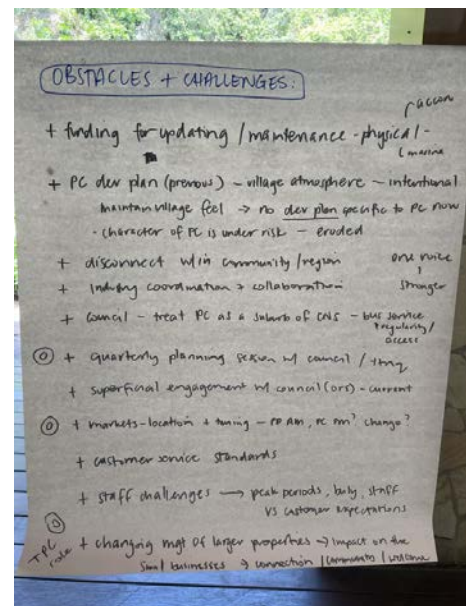 OBSTACLES + CHALLENGES:
accom
+ funding for updating / maintenance - physical -
marina
+ PC dev plan (previous) - village atmosphere - intentional
maintain village feel → no dev plan specific to PC now
- character of PC is under risk - eroded
+ disconnect w/in community/region
one voice
+ Industry coordination + collaboration
stronger
+ council - treat PC as a suburb of CNS - bus service
regularity/
access
+ quarterly planning session w/ council /
+ superficial engagement w/ council(ors) - current
+ markets - location + timing - PD AM, PC PM? change?
+ customer service standards
+ staff challenges → peak periods, busy, staff
vs customer expectations
TPC
role
+ changing mgt of larger properties → impact on the
small businesses → connection / community / welcome